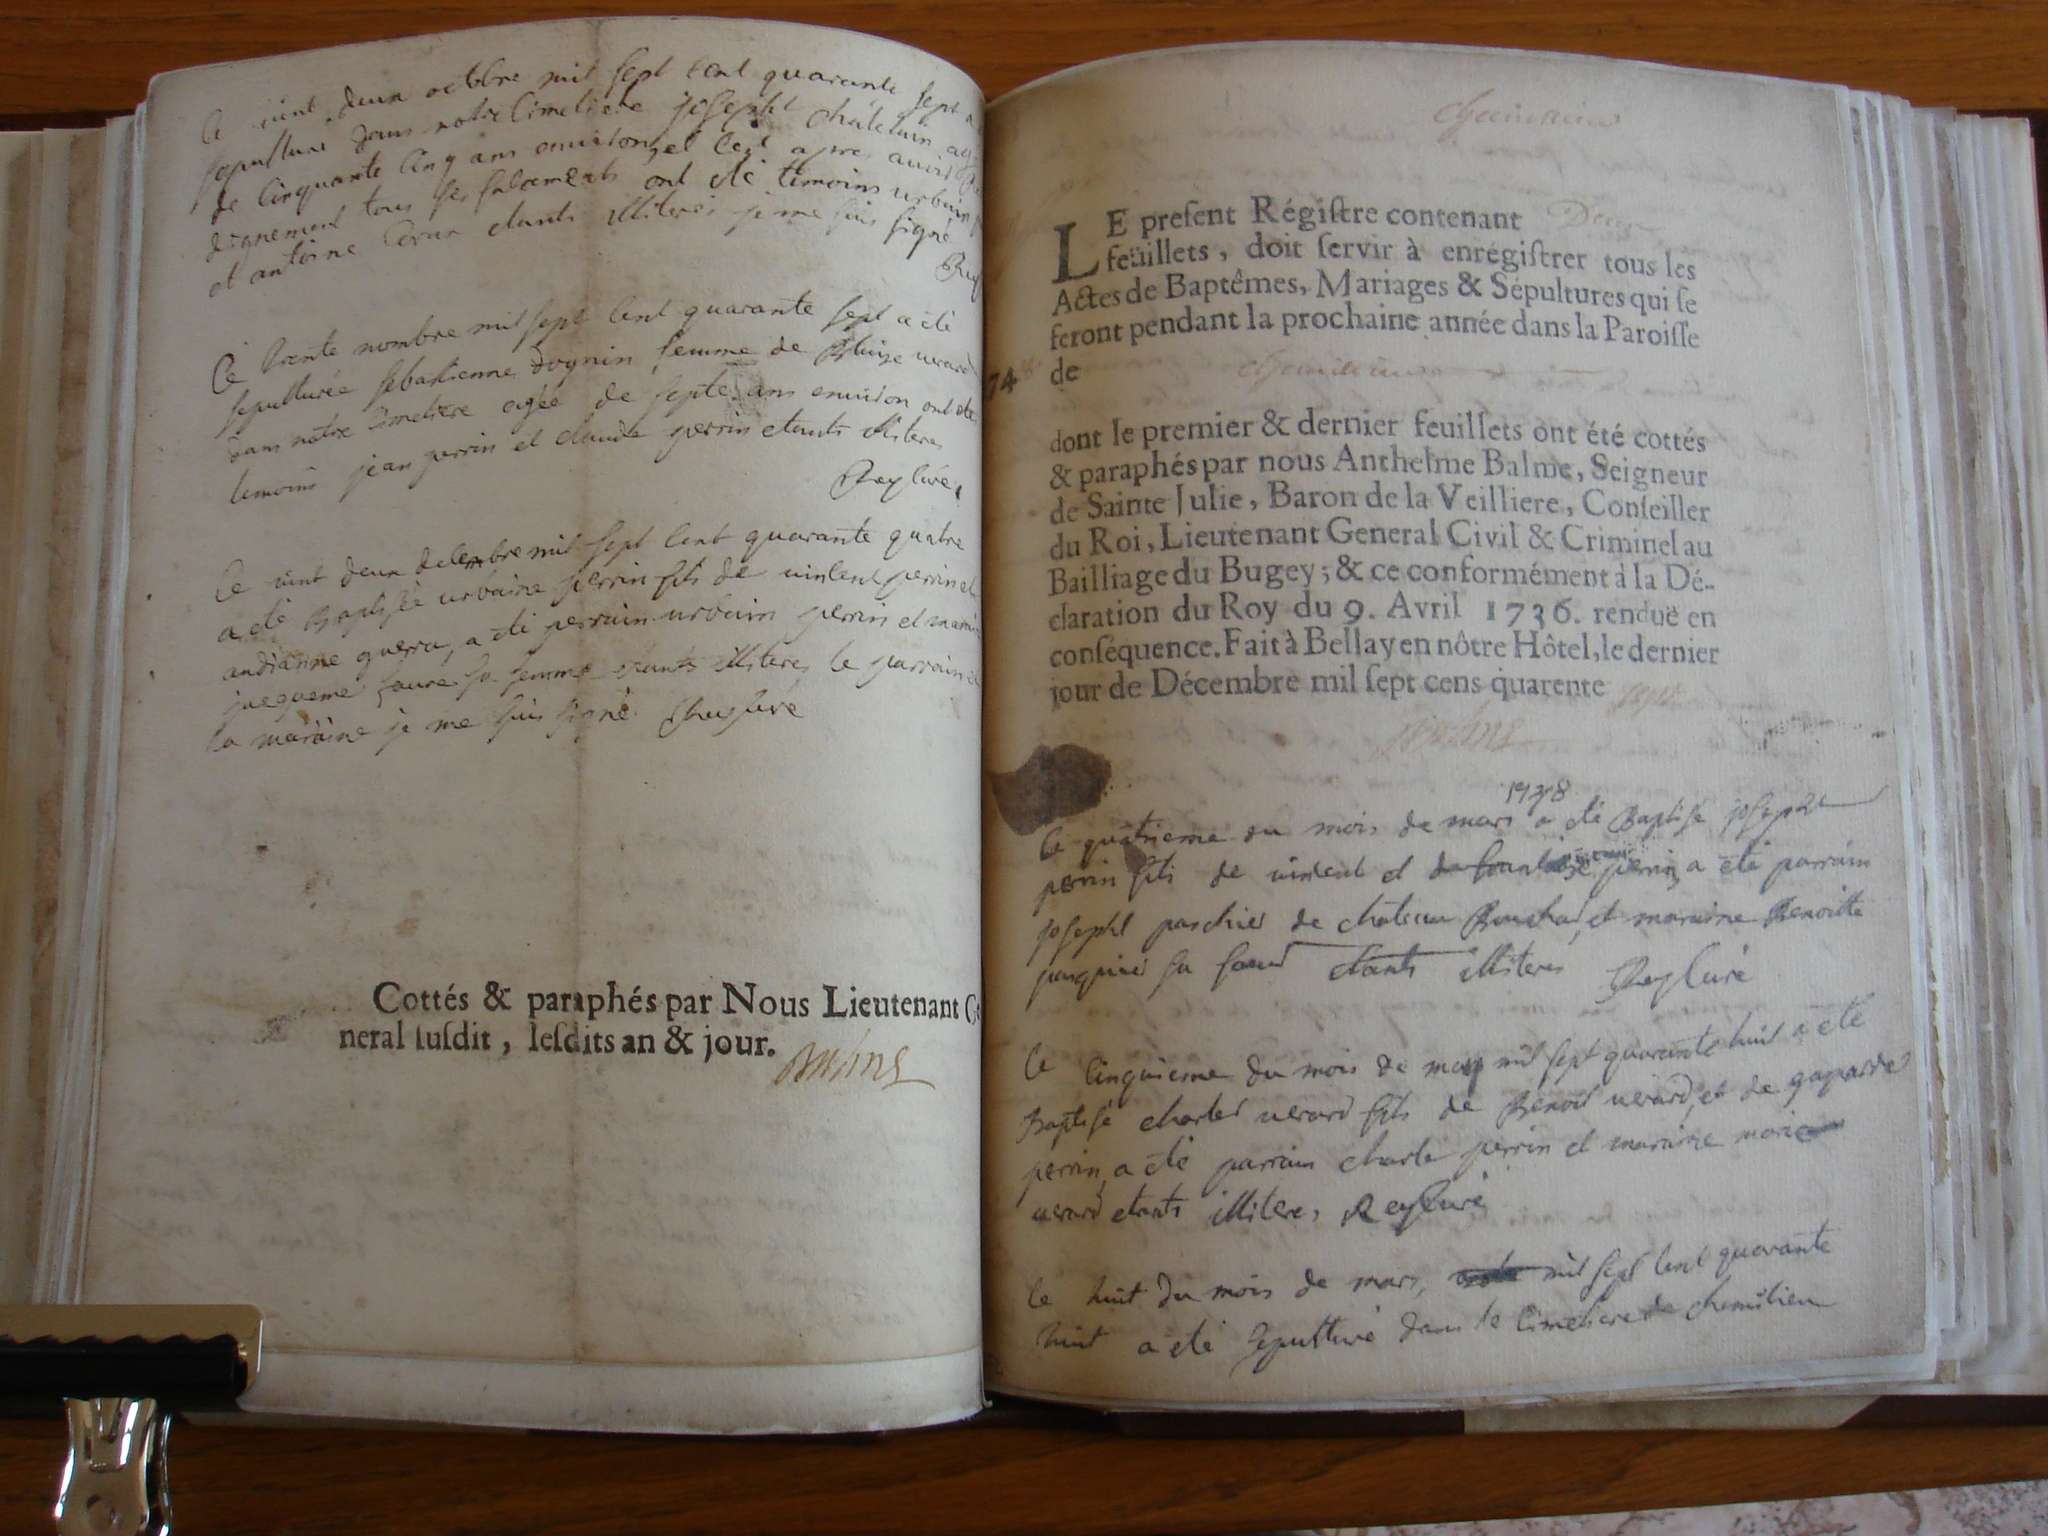 Ce vint deux octobre mil sept cent quarante sept a
sepulturé dans notre Cimetiere joseph chatelain
de Cinquante Cinq ans environ, et Cest apres avoir
dignement tous ses sacrements ont eté temoins urbain
et antoine étants illiteres je me suis signé
Ce trente mil sept Cent quarante sept a eté
sepulturée sebastienne dognin femme de Blaize verard
dans notre Cimetiere agée de septe ans environ ont eté
temoins jean perrin et claude perrin etants illiteres
Reyluré
Ce vint deux decembre mil sept Cent quarante quatre
a eté Baptisée urbaine perrin fils de vincent perrin et
andrianne guerra, a eté perrain urbain perrin et
jaequeme faure sa femme étants illiteres le parrain et
la maraine je me suis signé Reyluré
Cottés & paraphés par Nous Lieutenant Ge
neral ſuſdit, leſdits an & jour.
LE preſent Régiſtre contenant
feüillets, doit ſervir à enrégiſtrer tous les
Actes de Baptêmes, Mariages & Sépultures qui ſe
feront pendant la prochaine année dans la Paroiſſe
74 de
dont le premier & dernier feuillets ont été cottés
& paraphés par nous Anthelme Balme, Seigneur
de Sainte Julie, Baron de la Veilliere, Conſeiller
du Roi, Lieutenant General Civil & Criminel au
Bailliage du Bugey; & ce conformément à la Dé-
claration du Roy du 9. Avril 1736. renduë en
conſéquence. Fait à Bellay en nôtre Hôtel, le dernier
jour de Décembre mil ſept cens quarente sept
1748
Ce quatrieme du mois de mars a eté Baptise joseph
perrin fils de vincent et perrin, a eté parrain
joseph paschier de château Bouchard, et maraine Benoitte
pasquier sa soeur étants illiteres Reyluré
Ce Cinquieme du mois de may mil sept quarante huit a eté
Baptisé charles verard fils de Benoit verard, et de gaparde
perrin, a eté parrain charle perrin et maraine marie
verard etants illiteres, Reyluré
Ce huit du mois de mars, mil sept Cent quarante
huit a eté sepulturé dans le Cimetiere de chemilieu